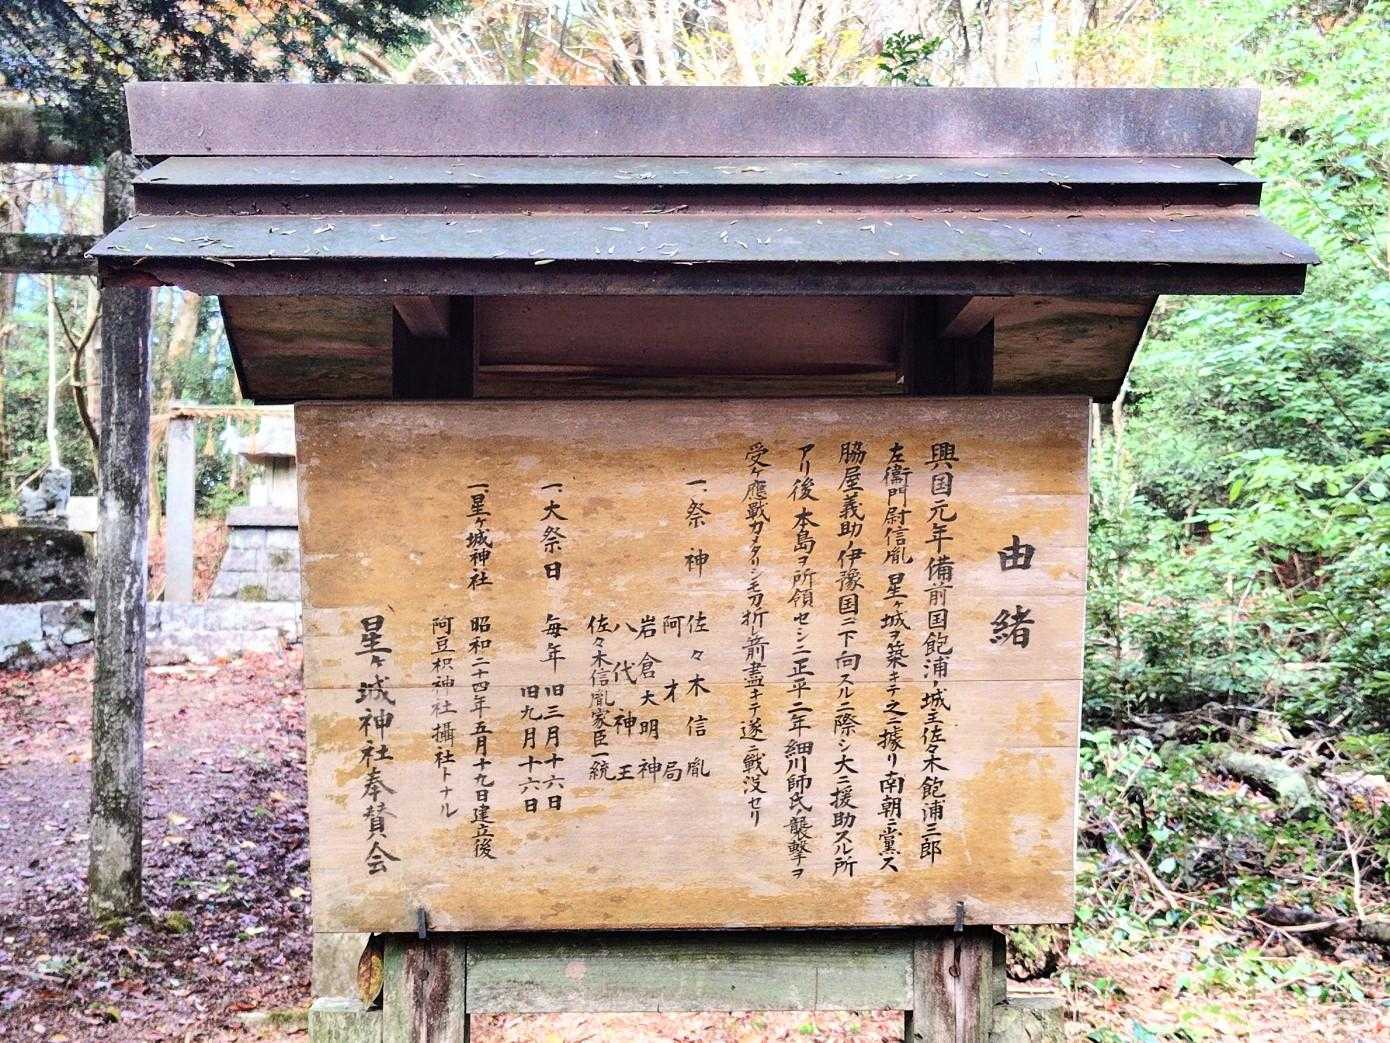 由緒
興国元年備前国飽浦ノ城主佐々木飽浦三郎
左衛門尉信胤 星ヶ城ヲ築キテ之ニ據リ南朝ニ黨ス
脇屋義助ノ伊豫国ニ下向スルニ際シ大ニ援助スル所
アリ後本島ヲ所領セシニ正平二年細川師氏襲撃ヲ
受ケ應戰カメタリシモ刀折レ箭盡キテ遂ニ戰没セリ
一、祭神 佐々木信胤
阿才局
岩倉大明神
八代神王
佐々木信胤家臣一統
一、大祭日 毎年 旧三月十六日
旧九月十六日
一、星ヶ城神社 昭和二十四年五月十九日建立後
阿豆枳神社攝社トナル
星ヶ城神社奉賛会